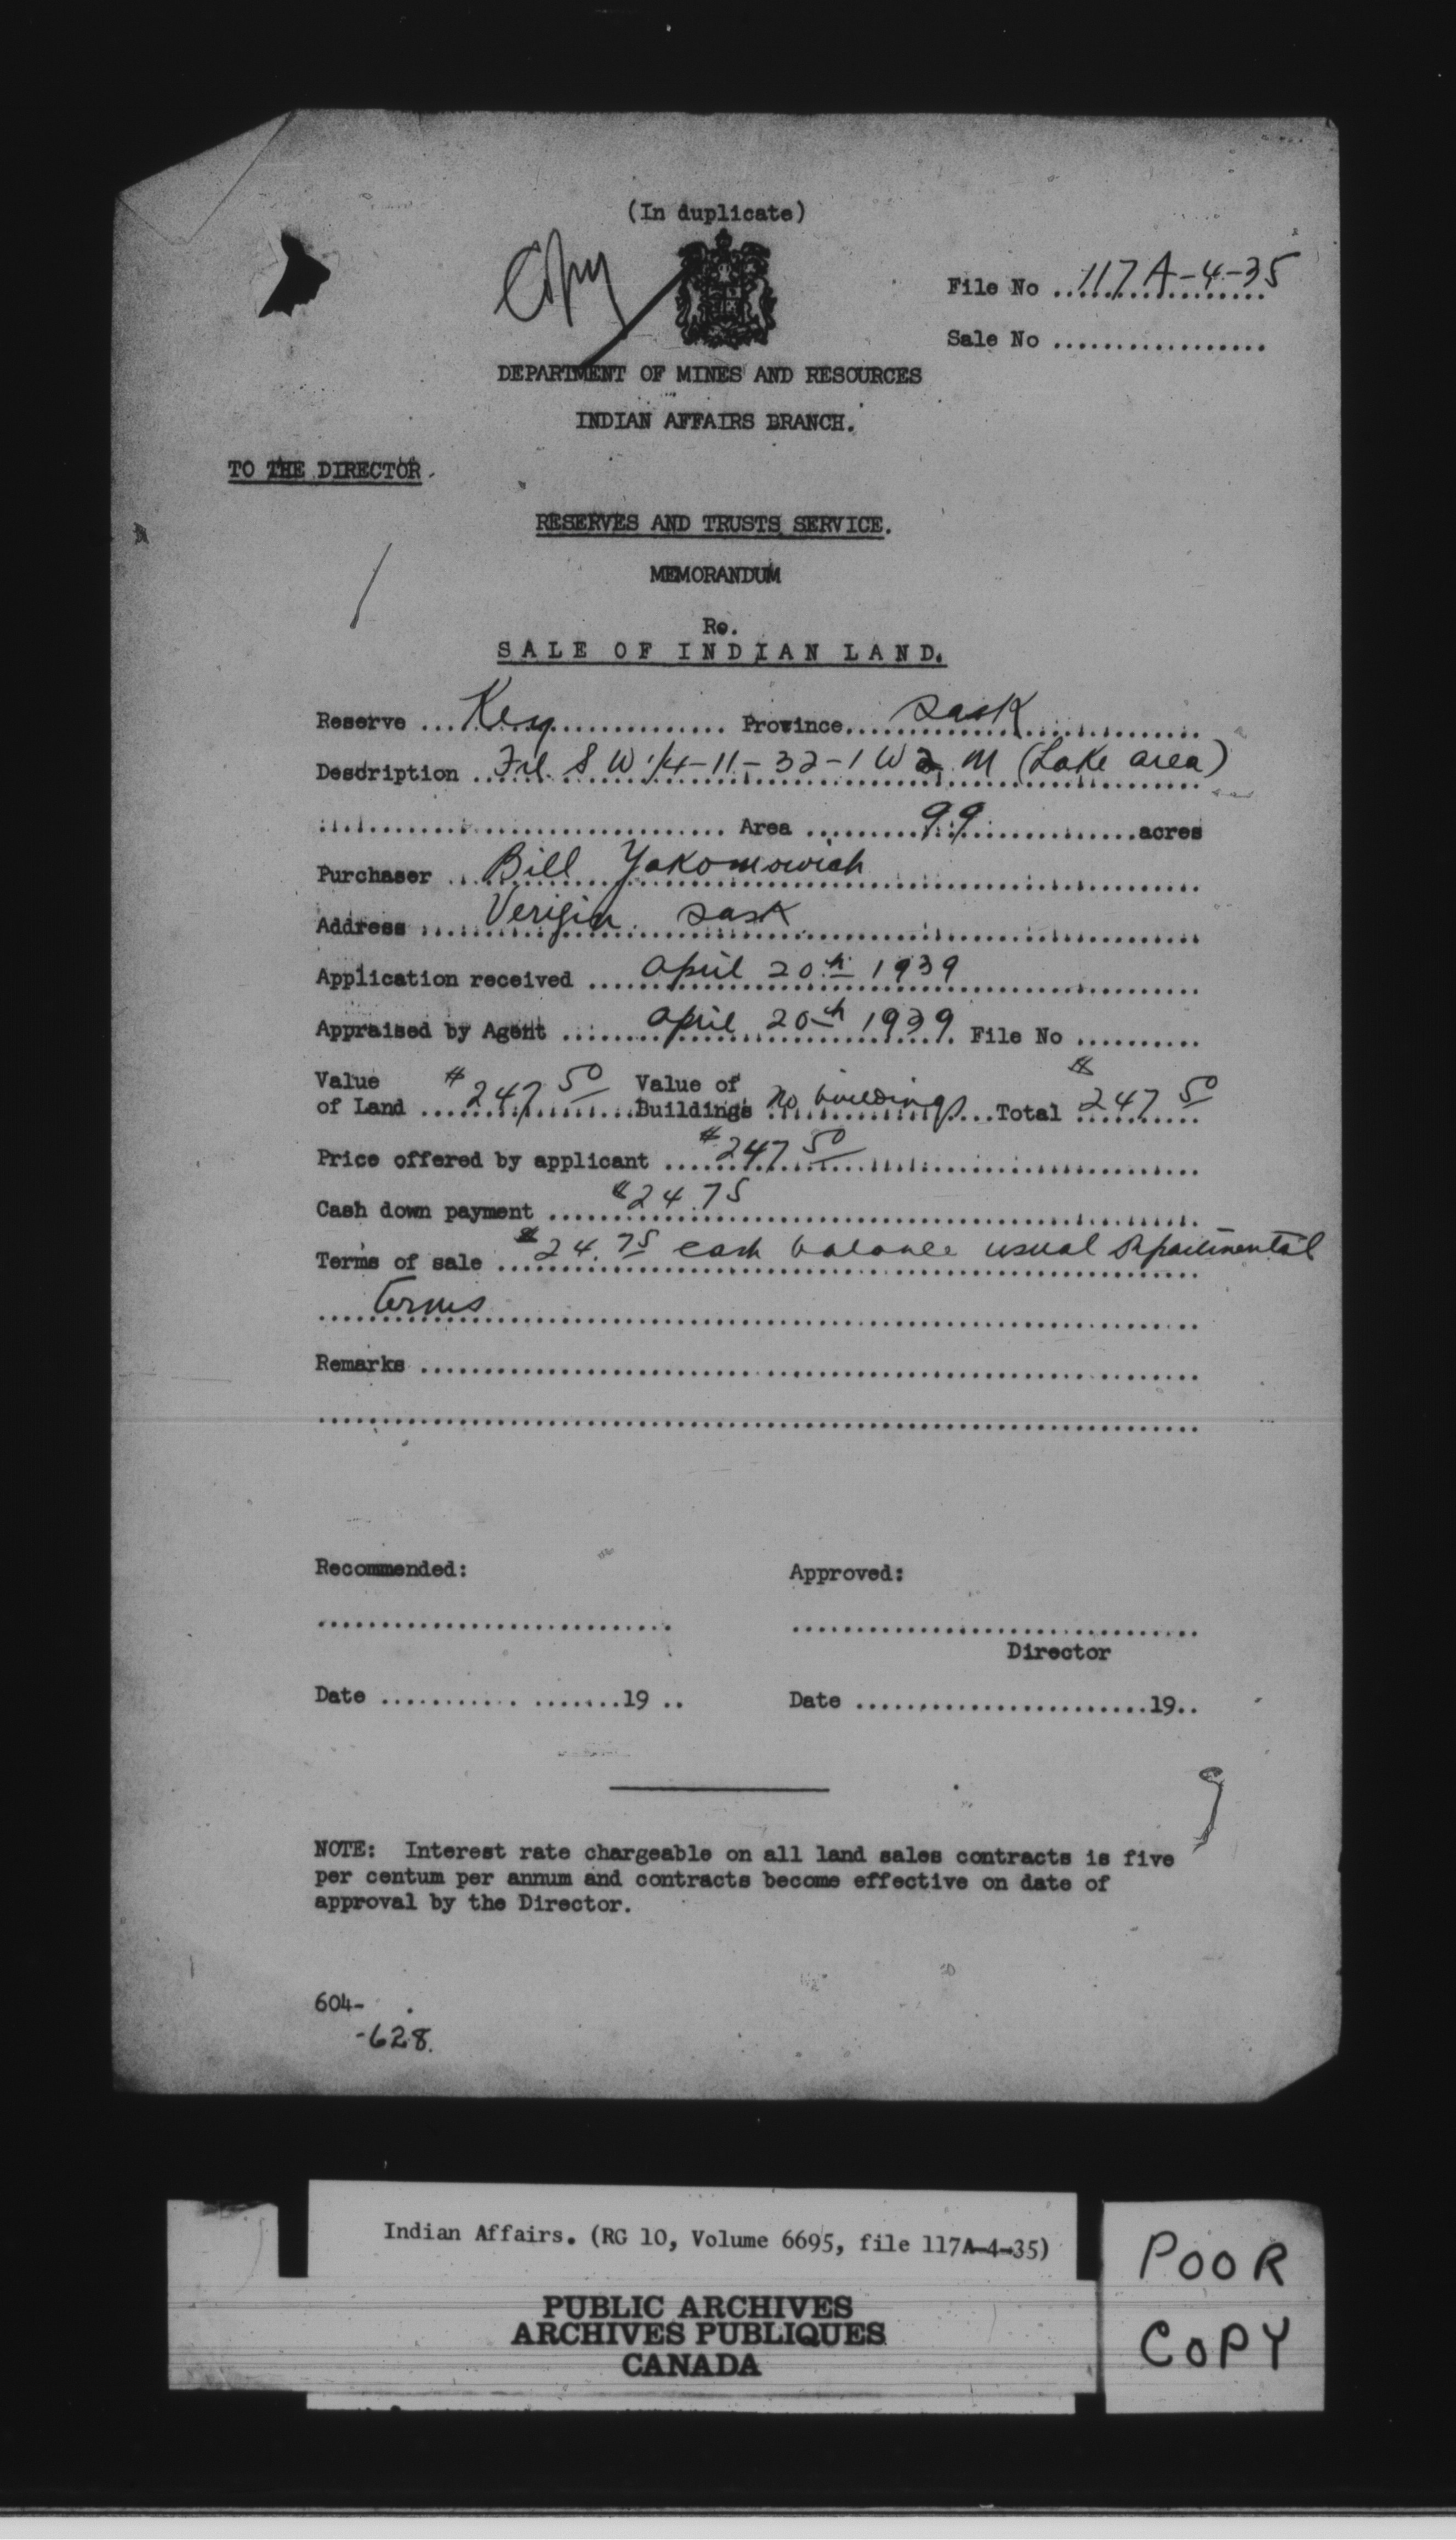 (In duplicate)
Copy
File No ... 117A-4-35
Sale No ..................
DEPARTMENT OF MINES AND RESOURCES
INDIAN AFFAIRS BRANCH.
TO THE DIRECTOR.
RESERVES AND TRUSTS SERVICE.
MEMORANDUM
Re.
SALE OF INDIAN LAND.
Reserve ... Key ... Province ... Sask ...
Description ... S W 1/4-11-32-1 W 2 M (Lake area)
... Area ... 99 ... acres
Purchaser ... Bill Yakomowich
Address ... Verigin Sask
Application received ... April 20th 1939
Appraised by Agent ... April 20th 1939. File No ..........
Value of Land ... $247 50 Value of Buildings No buildings ... Total $247 50
Price offered by applicant ... $247 50
Cash down payment ... $24.75
Terms of sale ... $24.75 cash balance usual Departmental
... terms
Remarks ..........
Recommended: Approved:
Director
Date ........... ........19 .. Date ........................19..
NOTE: Interest rate chargeable on all land sales contracts is five
per centum per annum and contracts become effective on date of
approval by the Director.
604-
-628.
Indian Affairs. (RG 10, Volume 6695, file 117A-4-35)
PUBLIC ARCHIVES
ARCHIVES PUBLIQUES
CANADA
POOR
COPY